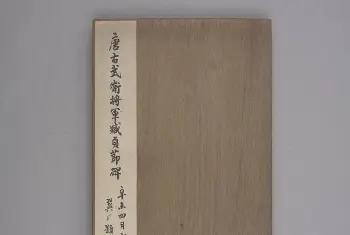 唐右武衛將軍臧貞節碑
辛未四月
題